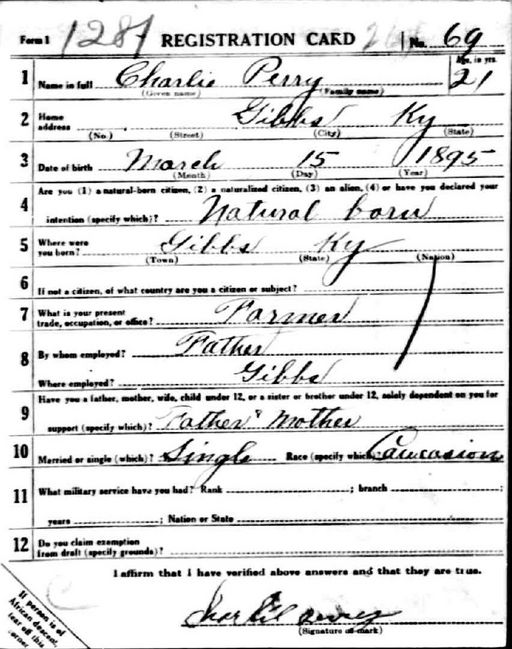 Form 1 1287 REGISTRATION CARD No. 69
1 Name in full Charlie Perry Age, in yrs. 21
(Given name) (Family name)
2 Home address Gibbs Ky
(No.) (Street) (City) (State)
3 Date of birth March 15 1895
(Month) (Day) (Year)
4 Are you (1) a natural-born citizen, (2) a naturalized citizen, (3) an alien, (4) or have you declared your
intention (specify which)? Natural born
5 Where were you born? Gibbs Ky
(Town) (State) (Nation)
6 If not a citizen, of what country are you a citizen or subject?
7 What is your present trade, occupation, or office? Farmer
8 By whom employed? Father
Where employed? Gibbs
9 Have you a father, mother, wife, child under 12, or a sister or brother under 12, solely dependent on you for
support (specify which)? Father & Mother
10 Married or single (which)? Single Race (specify which) Caucasion
11 What military service have you had? Rank ; branch ;
years ; Nation or State
12 Do you claim exemption from draft (specify grounds)?
I affirm that I have verified above answers and that they are true.
Charlie Perry
(Signature or mark)
If person is of
African descent,
tear off this
corner